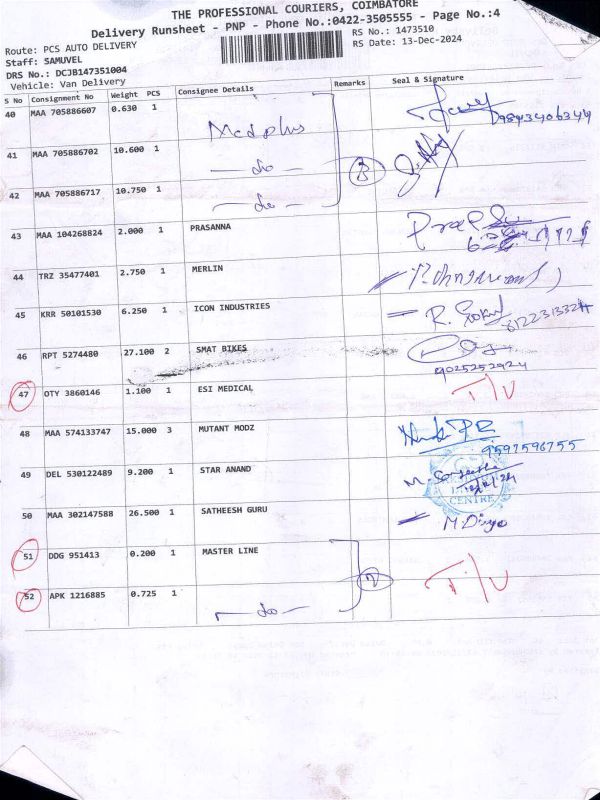 THE PROFESSIONAL COURIERS, COIMBATORE
Delivery Runsheet - PNP - Phone No.:0422-3505555 - Page No.:4
Route: PCS AUTO DELIVERY
RS No.: 1473510
Staff: SAMUVEL
RS Date: 13-Dec-2024
DRS No.: DCJB147351004
Vehicle: Van Delivery
S No Consignment No Weight PCS Consignee Details Remarks Seal & Signature
40 MAA 705886607 0.630 1 Medplus 9843406344
41 MAA 705886702 10.600 1 - do -
3
42 MAA 705886717 10.750 1 - do -
43 MAA 104268824 2.000 1 PRASANNA
44 TRZ 35477401 2.750 1 MERLIN
45 KRR 50101530 6.250 1 ICON INDUSTRIES
46 RPT 5274480 27.100 2 SMAT BIKES
9025252924
47 OTY 3860146 1.100 1 ESI MEDICAL T/U
48 MAA 574133747 15.000 3 MUTANT MODZ
9597596755
49 DEL 530122489 9.200 1 STAR ANAND
CENTRE
50 MAA 302147588 26.500 1 SATHEESH GURU M. Divya
51 DDG 951413 0.200 1 MASTER LINE
2 T/U
52 APK 1216885 0.725 1 - do -